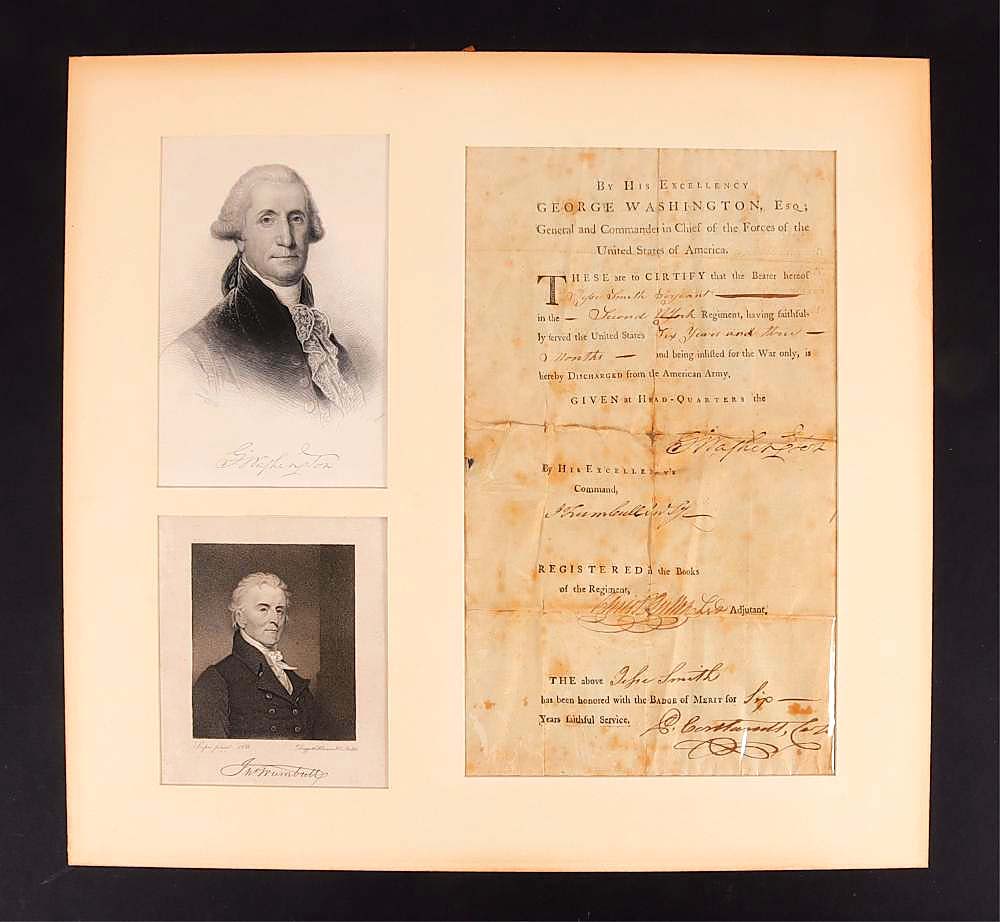 G Washington
Jn Trumbull
By His Excellency
GEORGE WASHINGTON, Esq;
General and Commander in Chief of the Forces of the
United States of America.
THESE are to CIRTIFY that the Bearer hereof
Jesse Smith Serjeant
in the — Second York Regiment, having faithful-
ly served the United States Six Years and three —
Months — and being inlisted for the War only, is
hereby Discharged from the American Army.
GIVEN at Head-Quarters the
G Washington
By His Excellency's
Command,
J Trumbull Jun Sy
REGISTERED in the Books
of the Regiment,
Adjutant,
THE above Jesse Smith
has been honored with the Badge of Merit for Six —
Years faithful Service.